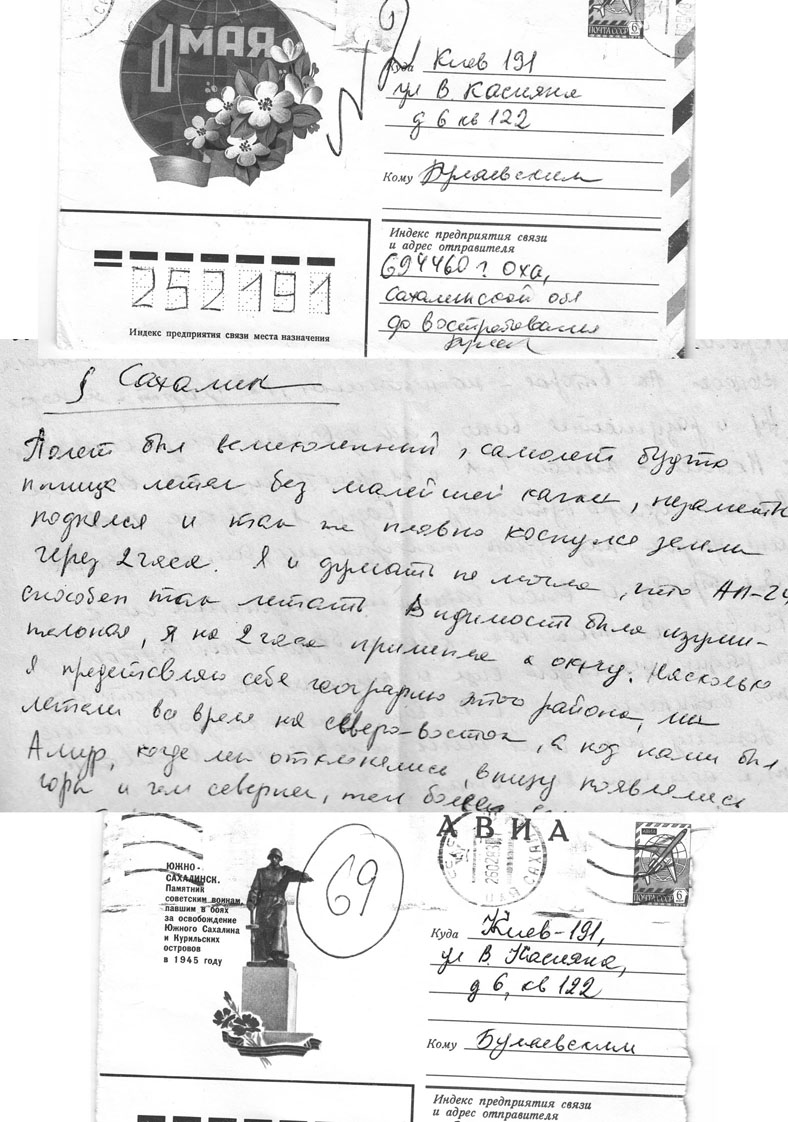 1 МАЯ
ПОЧТА СССР 6
Куда Киев 191
ул В. Касияна
д 6 кв 122
Кому Булаевским
Индекс предприятия связи
и адрес отправителя
694460 г. Оха,
Сахалинской обл
до востребования
252191
Индекс предприятия связи места назначения
Сахалин
Полет был великолепный, самолет будто
птица летел без малейшей качки, незаметно
поднялся и так же плавно коснулся земли
через 2 часа. Я и думать не могла, что АН-24
способен так летать. Видимость была изуми-
тельная, я на 2 часа прилипла к окну. Насколько
я представляю себе географию этого района, мы
летели во время на северо-восток, а под нами был
Амур, когда мы отклонялись, внизу появлялись
горы и чем севернее, тем более
АВИА
ЮЖНО-
САХАЛИНСК.
Памятник
советским воинам,
павшим в боях
за освобождение
Южного Сахалина
и Курильских
островов
в 1945 году
69
АВИА
ПОЧТА СССР 6
Куда Киев-191,
ул В. Касияна,
д 6, кв 122
Кому Булаевским
Индекс предприятия связи
и адрес отправителя